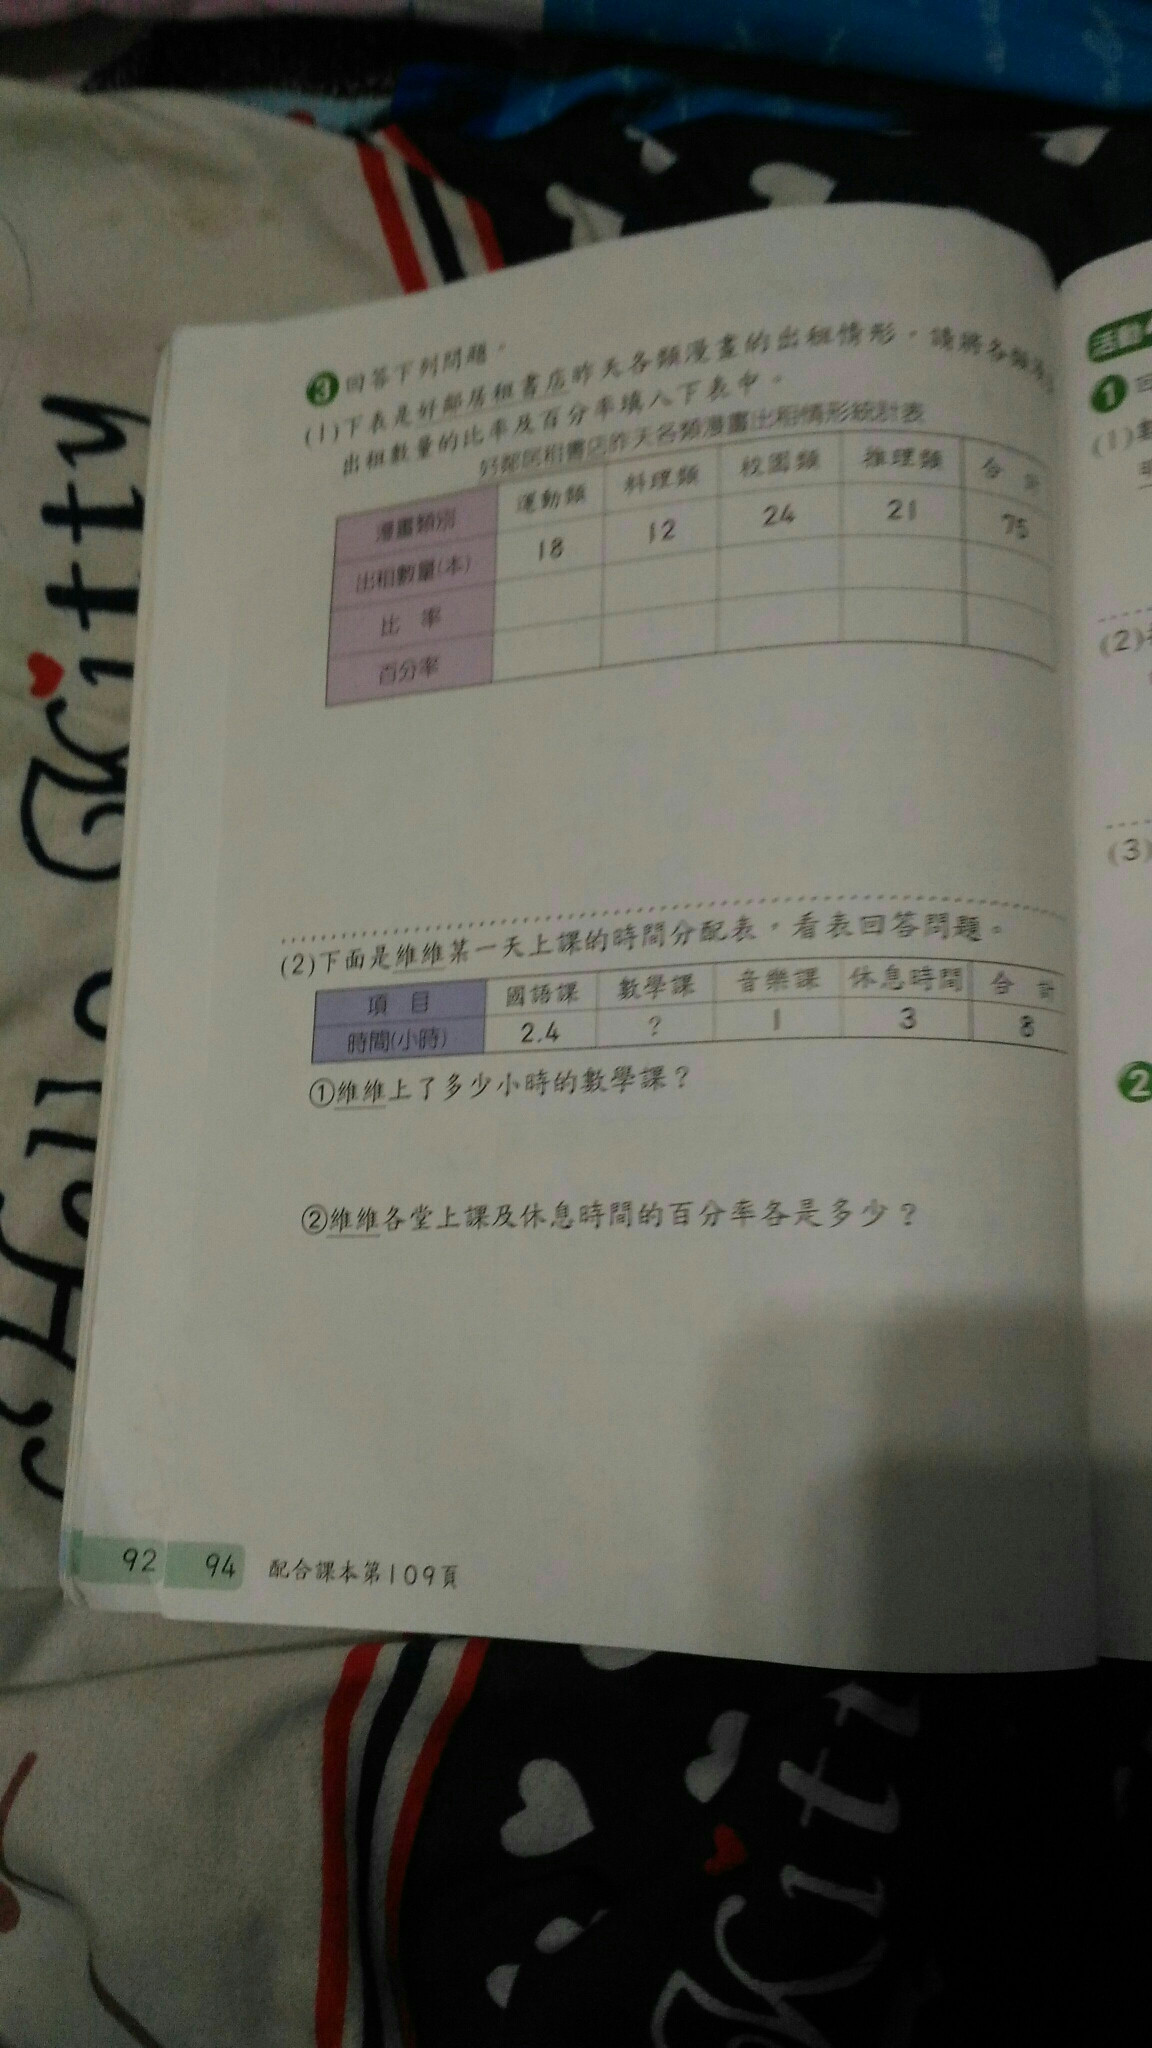 3 回答下列問題。
(1)下表是好鄰居租書店昨天各類漫畫的出租情形，請將各類
出租數量的比率及百分率填入下表中。
好鄰居租書店昨天各類漫畫出租情形統計表
漫畫類別 運動類 料理類 校園類 推理類 合 計
出租數量(本) 18 12 24 21 75
比 率
百分率
(2)下面是維維某一天上課的時間分配表，看表回答問題。
項 目 國語課 數學課 音樂課 休息時間 合 計
時間(小時) 2.4 ? 1 3 8
①維維上了多少小時的數學課？
②維維各堂上課及休息時間的百分率各是多少？
92 94 配合課本第109頁
活動
1
(1)
(2)
(3)
2
Hello Kitty
Kitt